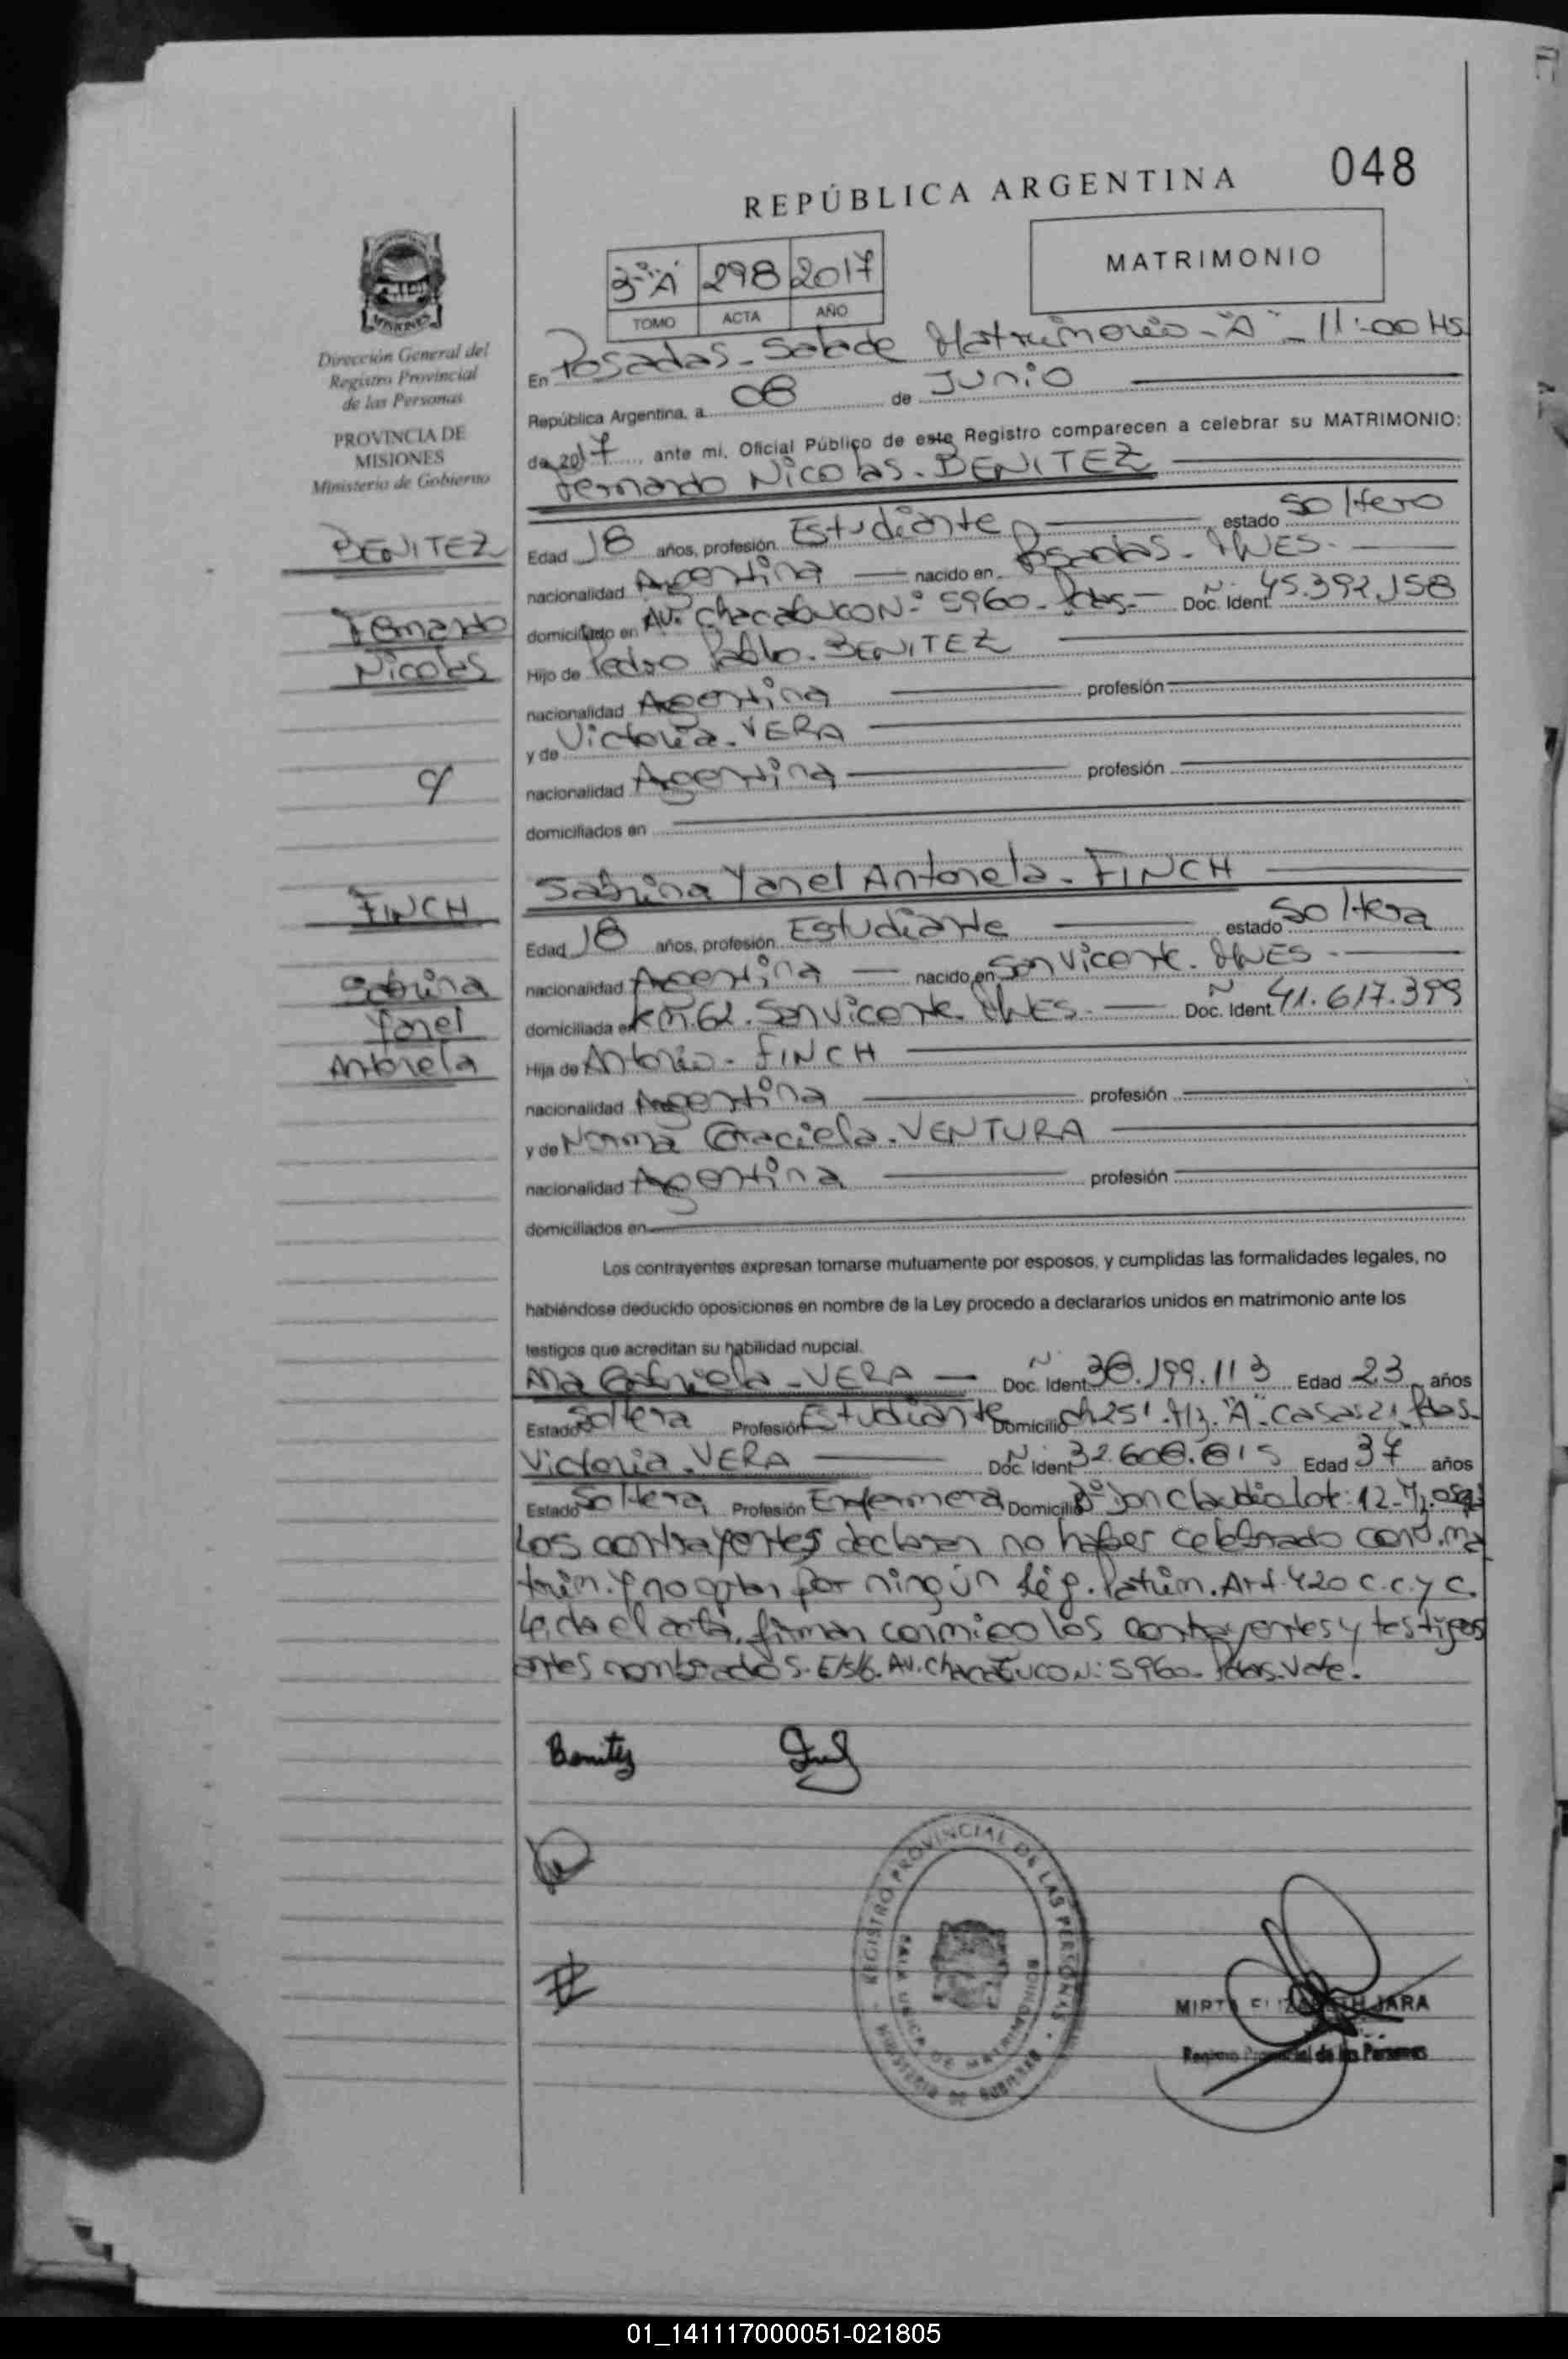 048
REPÚBLICA ARGENTINA
MATRIMONIO
3º "A" 298 2017
TOMO ACTA AÑO
MISIONES
Dirección General del
Registro Provincial
de las Personas
PROVINCIA DE
MISIONES
Ministerio de Gobierno
En Posadas - Sala de Matrimonio - "A" - 11:00 Hs
República Argentina, a 08 de Junio
de 2017 ante mi, Oficial Público de este Registro comparecen a celebrar su MATRIMONIO:
Fernando Nicolas - BENITEZ
BENITEZ
Fernando
Nicolas
Edad 18 años, profesión Estudiante estado Soltero
nacionalidad Argentina nacido en Posadas - MNES -
domiciliado en AV. Chacabuco Nº 5960 - Pdas - Doc. Ident. Nº 45.392.158
Hijo de Pedro Pablo - BENITEZ
nacionalidad Argentina profesión
y de Victoria - VERA
nacionalidad Argentina profesión
domiciliados en
c/
FINCH
Sabrina
Yanel
Antonela
Sabrina Yanel Antonela - FINCH
Edad 18 años, profesión Estudiante estado Soltera
nacionalidad Argentina nacido en San Vicente - MNES -
domiciliada en Km. 62 - San Vicente - MNES - Doc. Ident. Nº 41.617.399
Hija de Antonio - FINCH
nacionalidad Argentina profesión
y de Norma Graciela - VENTURA
nacionalidad Argentina profesión
domiciliados en
Los contrayentes expresan tomarse mutuamente por esposos, y cumplidas las formalidades legales, no
habiéndose deducido oposiciones en nombre de la Ley procedo a declararlos unidos en matrimonio ante los
testigos que acreditan su habilidad nupcial.
Ma Gabriela - VERA - Doc. Ident. Nº 38.199.113 Edad 23 años
Estado Soltera Profesión Estudiante Domicilio Ch 251 - Mz. "A" - Casa: 21 - Pdas -
Victoria - VERA Doc. Ident. Nº 32.608.815 Edad 37 años
Estado Soltera Profesión Enfermera Domicilio Bº San Claudio lot: 12 - Mz.
Los contrayentes declaran no haber celebrado conv. ma
trim. y no optan por ningún Rég. Patrim. Art. 420 C.C. y C.
Leída el acta, firman conmigo los contrayentes y testigos
antes nombrados. E/S/6. AV. Chacabuco N: 5960 - Pdas - Vale!
Benitez
REGISTRO PROVINCIAL DE LAS PERSONAS
SALA UNICA DE MATRIMONIOS
MINISTERIO DE GOBIERNO
MIRTA ELIZABETH JARA
Registro Provincial de las Personas
01_141117000051-021805